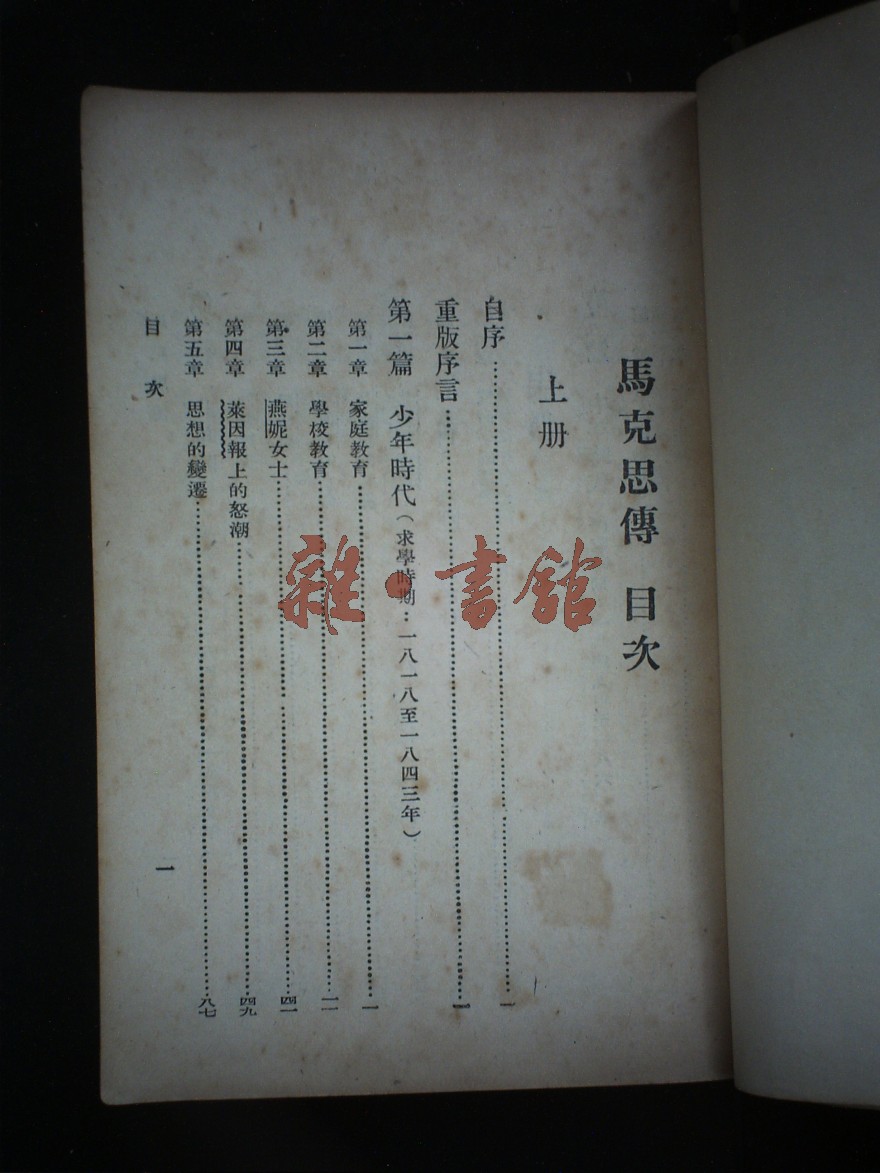 馬克思傳 目次
上册
自序……一
重版序言……一
第一篇 少年時代（求學時期：一八一八至一八四三年）
第一章 家庭教育……一
第二章 學校教育……一一
第三章 燕妮女士……四一
第四章 萊因報上的怒潮……四九
第五章 思想的變遷……八七
目次
一
雜·書館